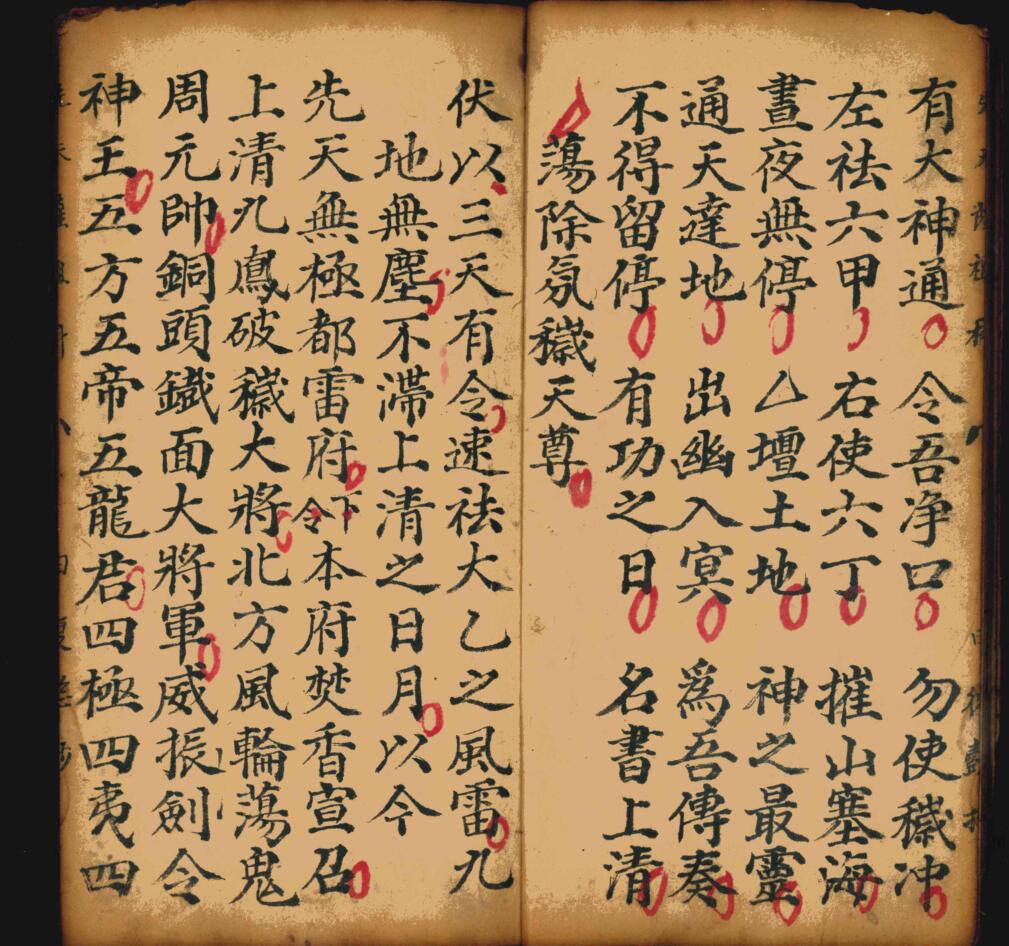 有大神通令吾净口勿使穢冲
左祛六甲右使六丁摧山塞海
晝夜無停厶壇土地神之最靈
通天達地出幽入冥為吾傳奏
不得留停有功之日名書上清
蕩除氛穢天尊
伏以三天有令速祛大乙之風雷九
地無塵不滯上清之日月以今
先天無極都雷府令下本府焚香宣召
上清九鳳破穢大將北方風輪蕩鬼
周元帥銅頭鐵面大將軍威振劍令
神王五方五帝五龍君四極四夷四